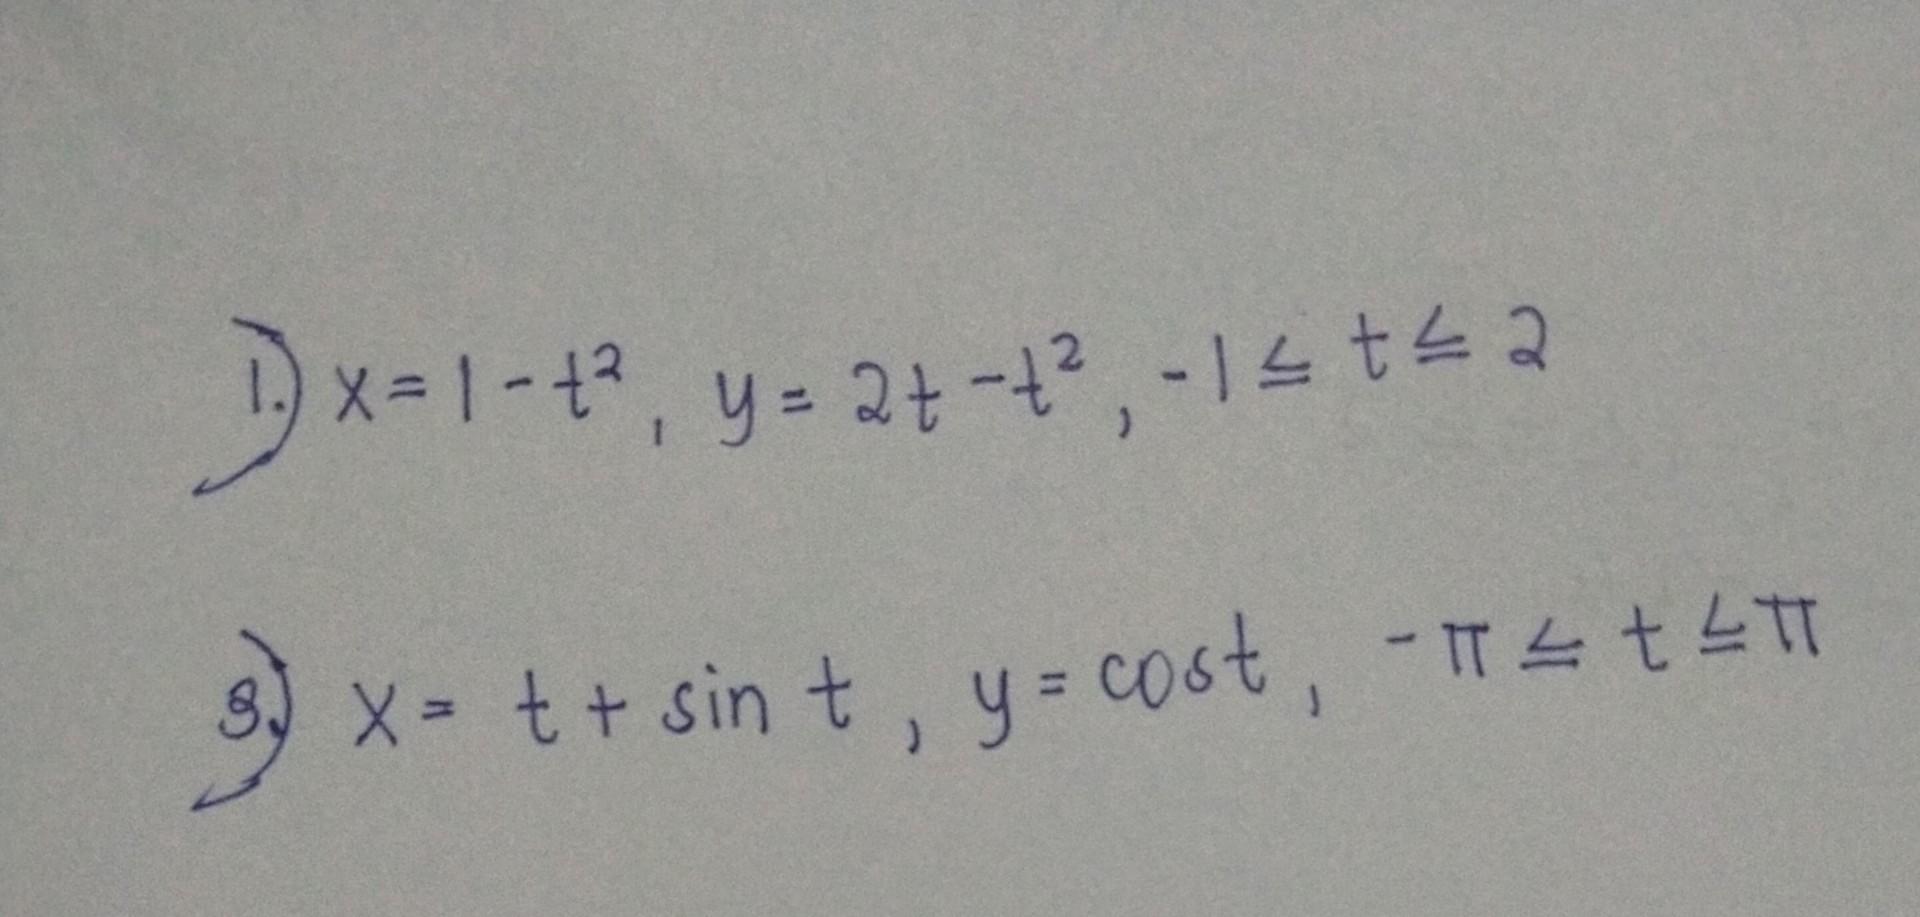 1.) x = 1 - t², y = 2t - t², -1 ≤ t ≤ 2
3.) x = t + sin t, y = cost, -π ≤ t ≤ π